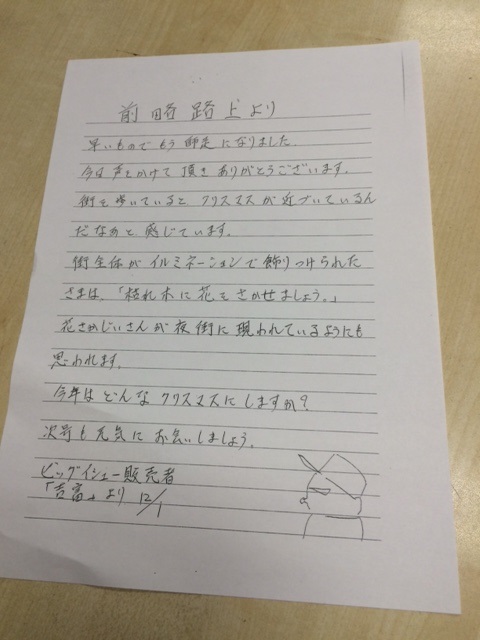 前略路上より
早いものでもう師走になりました。
今日声をかけて頂きありがとうございます。
街を歩いているとクリスマスが近づいているん
だなあと感じています。
街全体がイルミネーションで飾りつけられた
さまは、「枯れ木に花をさかせましょう。」
花さかじいさんが夜街に現われているようにも
思われます。
今年はどんなクリスマスにしますか?
次号も元気にお会いしましょう。
ビッグイシュー販売者
「吉富」より 12/1